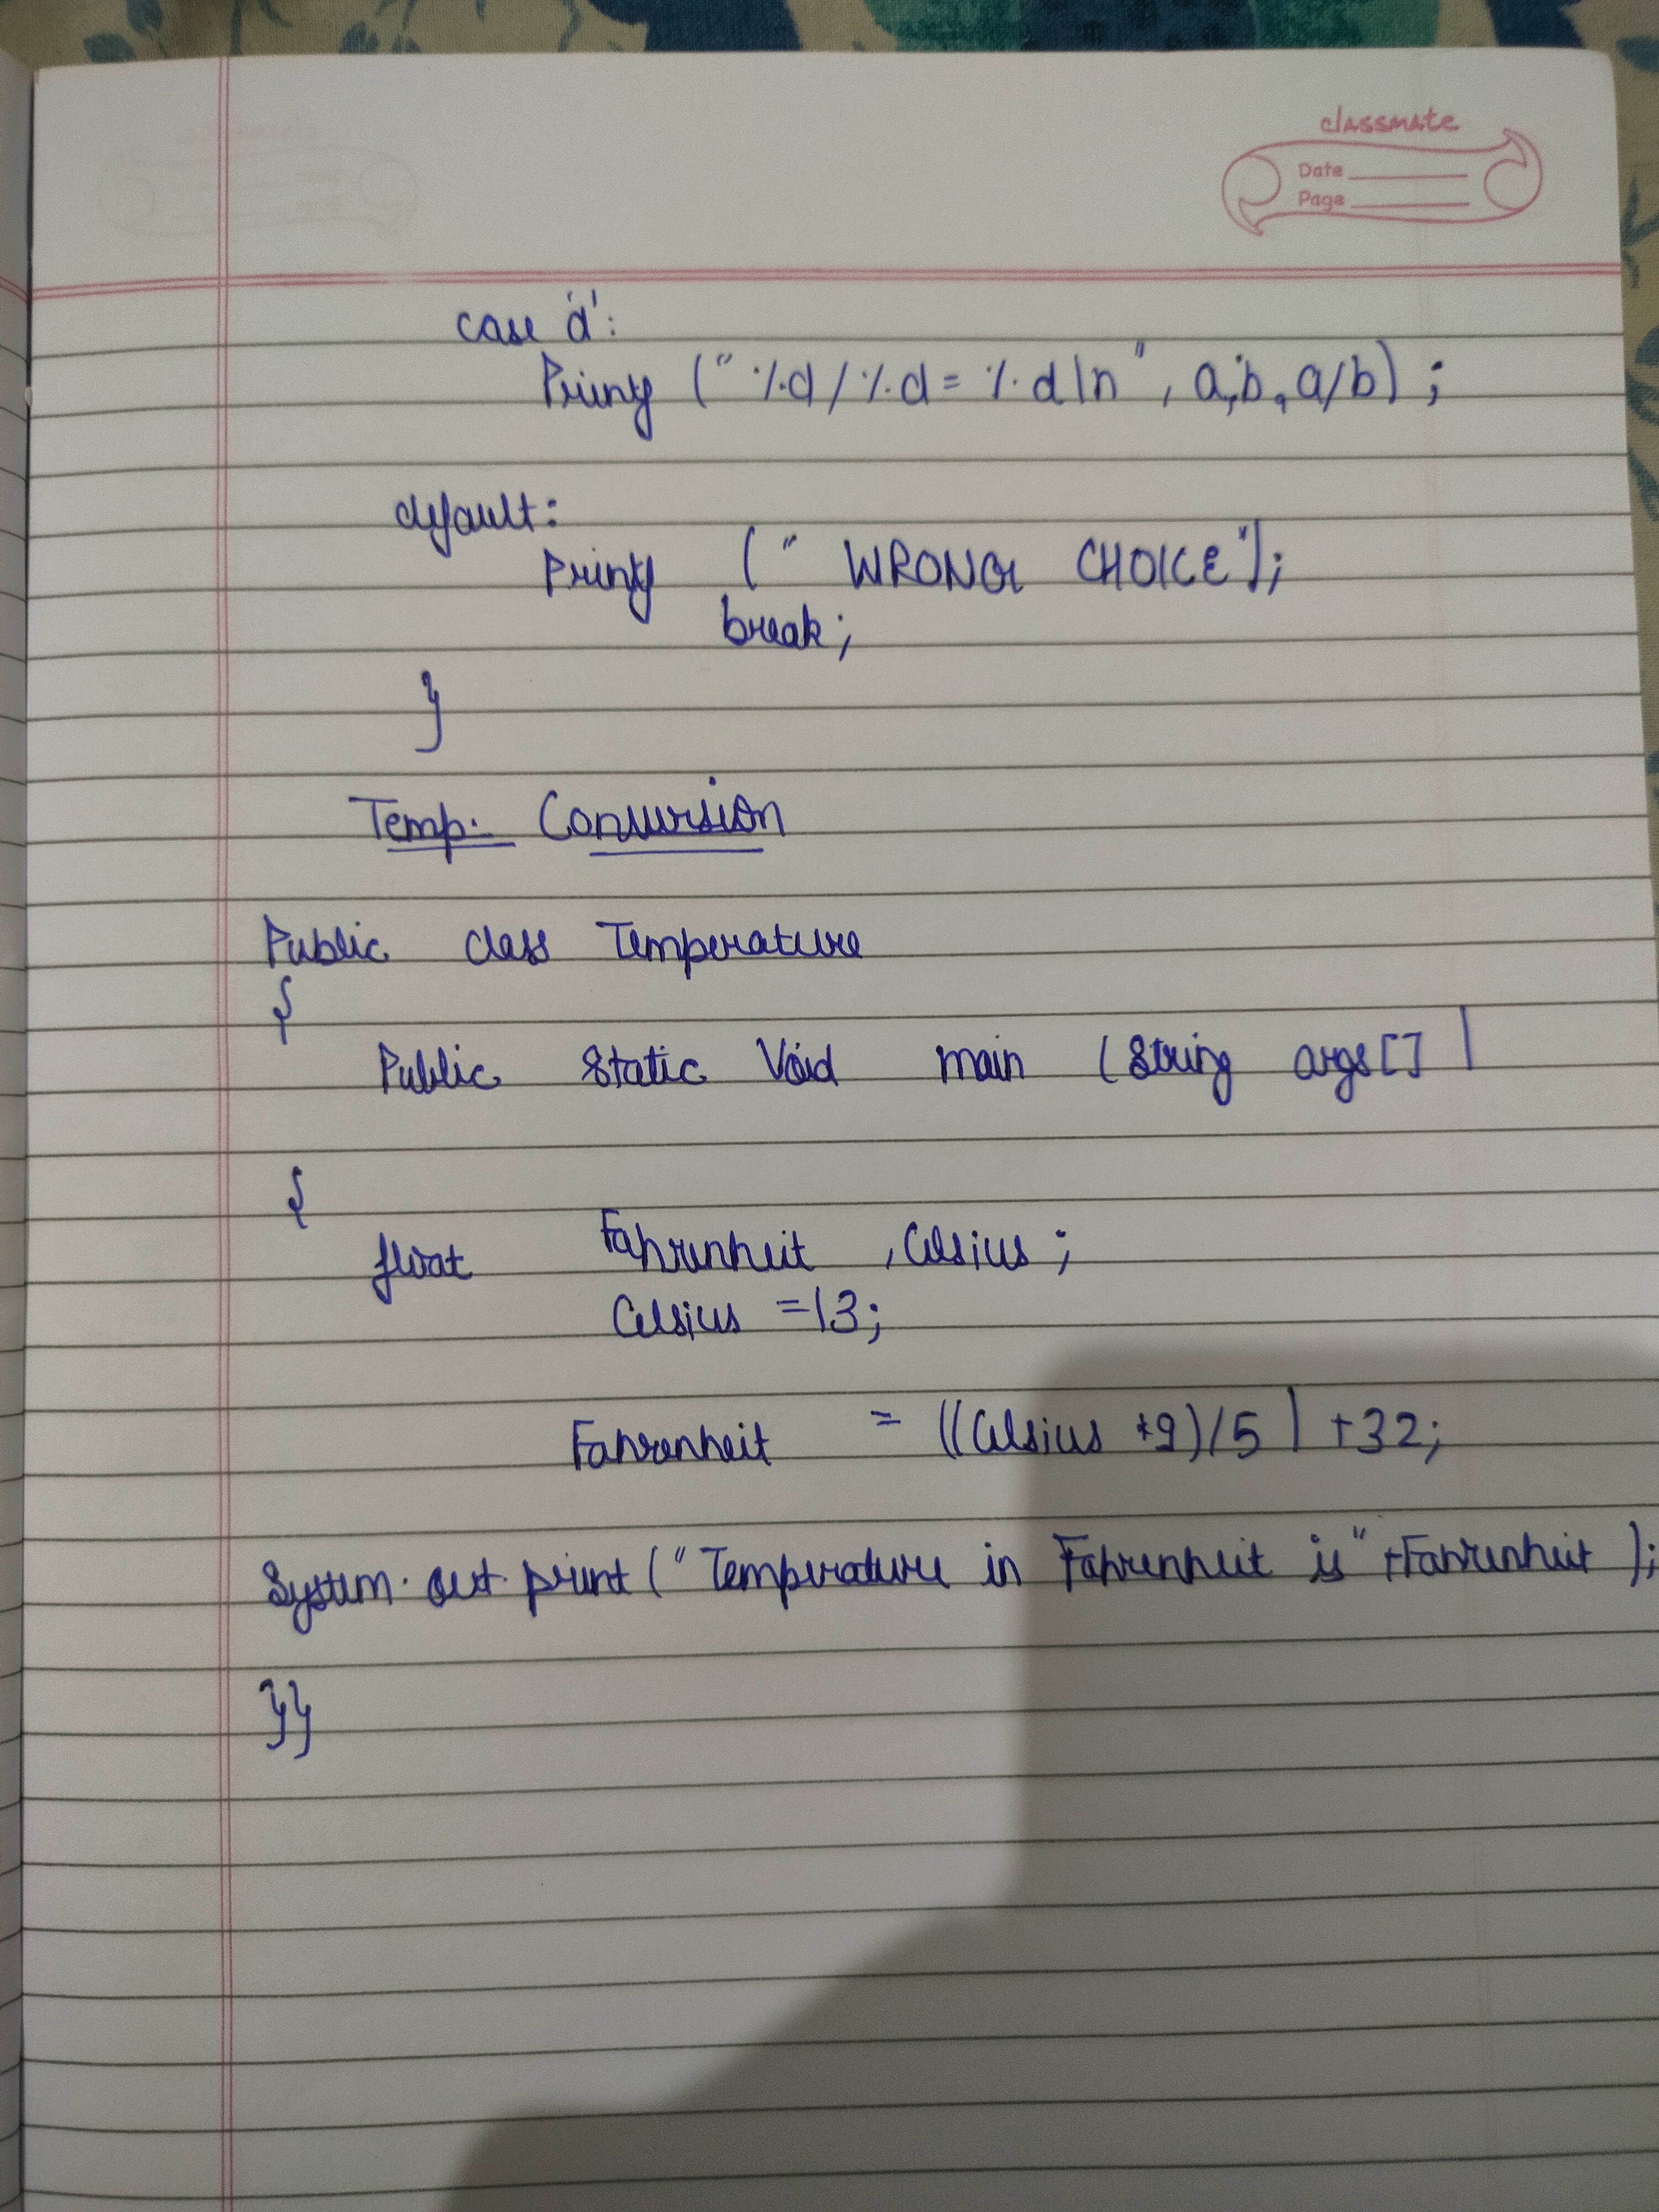 classmate
Date
Page
case 'd':
Printf ("%d/%d=%d\n", a,b,a/b);
default:
Printf (" WRONG CHOICE");
break;
}
Temp. Conversion
Public class Temperature
{
Public Static Void main (String args[] )
{
float Fahrenheit , Celsius;
Celsius =13;
Fahrenheit = ((Celsius *9)/5)+32;
System.out.print("Temperature in Fahrenheit is"+Fahrenheit );
}}